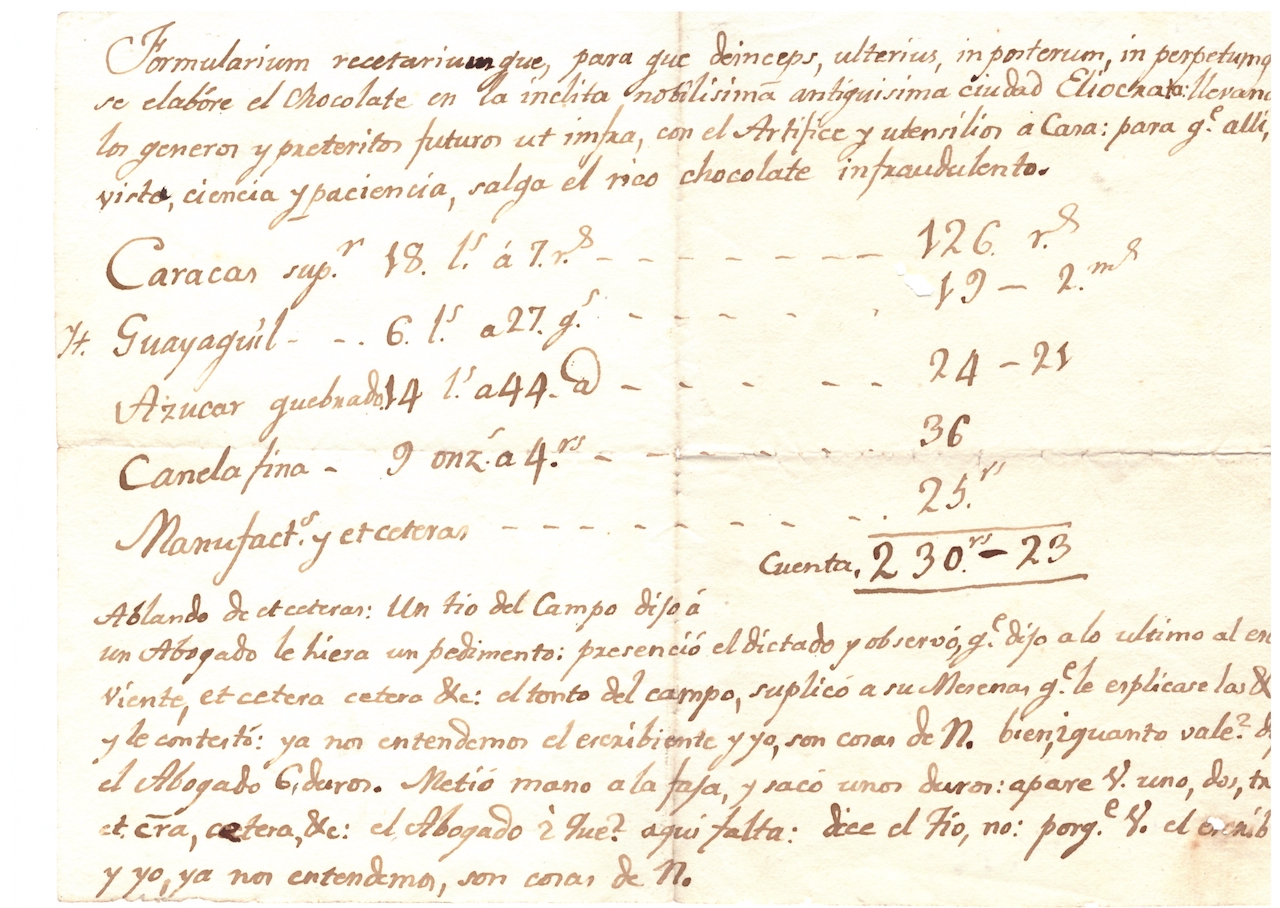 Formularium recetariumque, para que deinceps, ulterius, in posterum, in perpetumq
se elabóre el chocolate en la inclita nobilisima antiquisima ciudad Eliocrata: llevand
los generos y preteritos futuros ut imfra, con el Artifice y utensilios à Casa: para q.e alli,
vista, ciencia y paciencia, salga el rico chocolate infraudulento.
Caracas sup.r 18. l.s á 7. r.s - - - - - - - - 126. r.s
H. Guayaquil - - . 6. l.s a 27. q.s - - - - - 19 - 2. ms
Azucar quebrado 14 l.s a 44. @ - - - - - 24 - 21
Canela fina - 9 onz.s a 4. rs - - - - - 36
Manufact.s y et ceteras - - - - - - - - - - 25. rs
Cuenta, 230. rs - 23
Ablando de et ceteras: Un tio del Campo dijo á
un Abogado le hiera un pedimento: presenció el dictado y observó, q.e dijo a lo ultimo al es
viente, et cetera cetera &c: el tonto del campo, suplicó a su Mesenas q.e le esplicase las &
y le contestó: ya nos entendemos el escribiente y yo, son cosas de N. bien, ¿quanto vale? d
el Abogado 6, duros. Metió mano a la faja, y sacó unos duros: apare V. uno, dos, tr
et c̄ra, cetera, &c: el Abogado ¿Que? aqui falta: dice el Tio, no: porq.e V. el escrib
y yo, ya nos entendemos, son cosas de N.